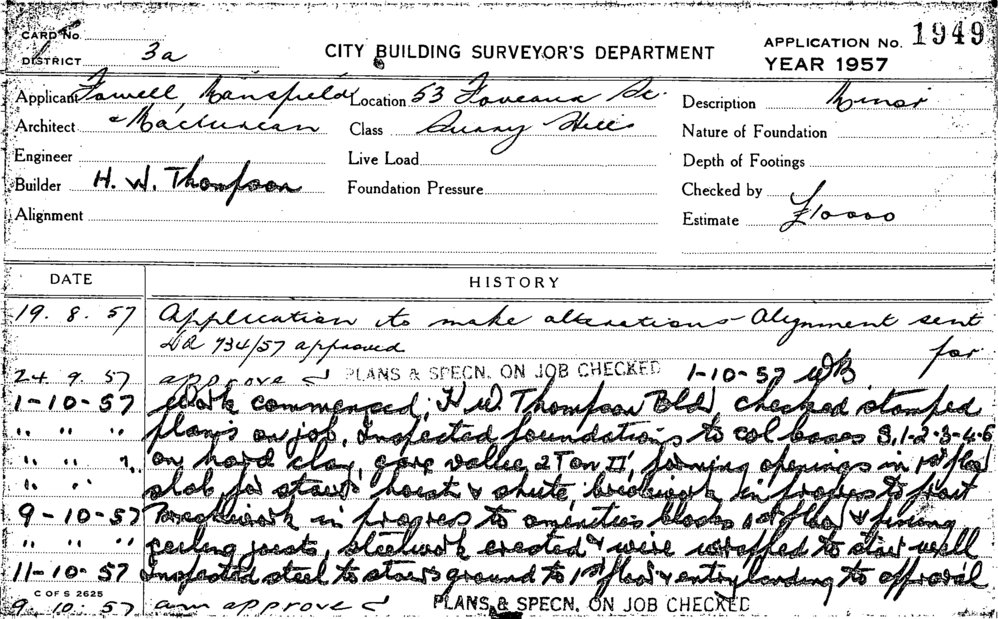 CARD No.
DISTRICT 3a
CITY BUILDING SURVEYOR'S DEPARTMENT
APPLICATION No. 1949
YEAR 1957
Applicant Fowell Mansfield Location 53 Foveaux St. Description Minor
Architect & Maclurcan Class Surry Hills Nature of Foundation
Engineer Live Load Depth of Footings
Builder H. W. Thompson Foundation Pressure Checked by
Alignment Estimate £10000
DATE HISTORY
19. 8. 57 Application to make alterations - Alignment sent
DA 734/57 approved for
24. 9. 57 approved PLANS & SPECN. ON JOB CHECKED 1-10-57 WB
1-10-57 Work commenced, H W. Thompson Bldr checked stamped
" " " plans on job, Inspected foundations to col bases 3,1-2-3-4-5
" " " on hard clay, gave value 2 Ton □', forming openings in 1st floor
" " slab for stairs hoist & chute, brickwork in progress to front
9-10-57 Brickwork in progress to amenities blocks 1st floor & fixing
" " " ceiling joists, steelwork erected & wire wrapped to stair well
11-10-57 Inspected steel to stairs ground to 1st floor & entry landing to approval
C OF S 2625
9. 10. 57 am approved PLANS & SPECN. ON JOB CHECKED